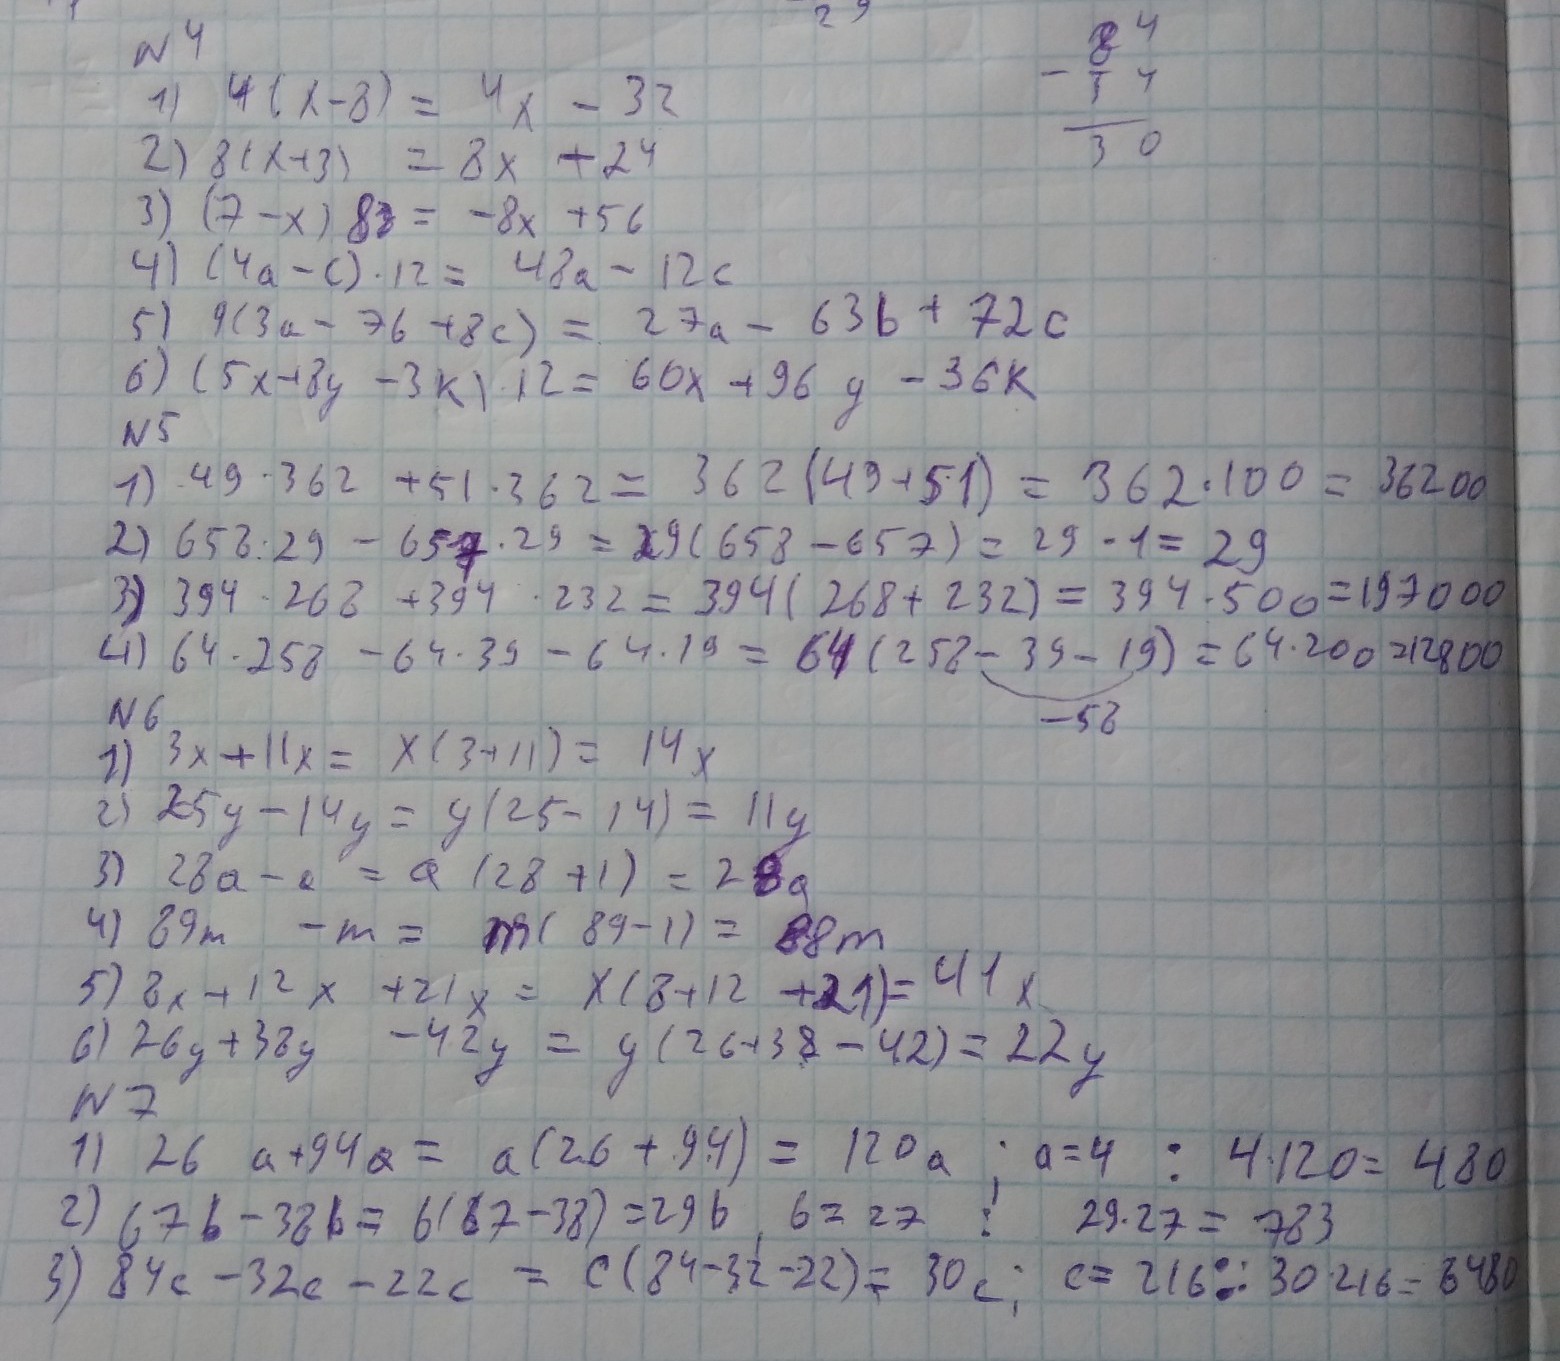 29
84
- 54
30
N4
1) 4(x-8) = 4x - 32
2) 8(x+3) = 8x + 24
3) (7-x) 8 = -8x +56
4) (4a-c)·12= 48a - 12c
5) 9(3a - 7b +8c) = 27a - 63b + 72c
6) (5x+8y -3k)·12= 60x +96y - 36k
N5
1) 49·362 +51·362 = 362(49+51) = 362·100 = 36200
2) 658·29 - 657·29 = 29(658-657) = 29·1= 29
3) 394·268 +394·232 = 394(268+232) = 394·500=197000
4) 64·258 -64·39 -64·19 = 64(258-39-19) = 64·200=12800
-58
N6
1) 3x+11x = x(3+11) = 14x
2) 25y-14y = y(25-14) = 11y
3) 28a-a = a(28+1) = 28a
4) 89m -m = m(89-1) = 88m
5) 8x+12x +21x = x(8+12+21)= 41x
6) 26y+38y -42y = y(26+38-42) = 22y
N7
1) 26a+94a = a(26+94) = 120a ; a=4 : 4·120= 480
2) 67b-38b= b(67-38)=29b , b=27 : 29·27= 783
3) 84c-32c-22c = c(84-32-22)= 30c; c= 216 : 30·216= 6480